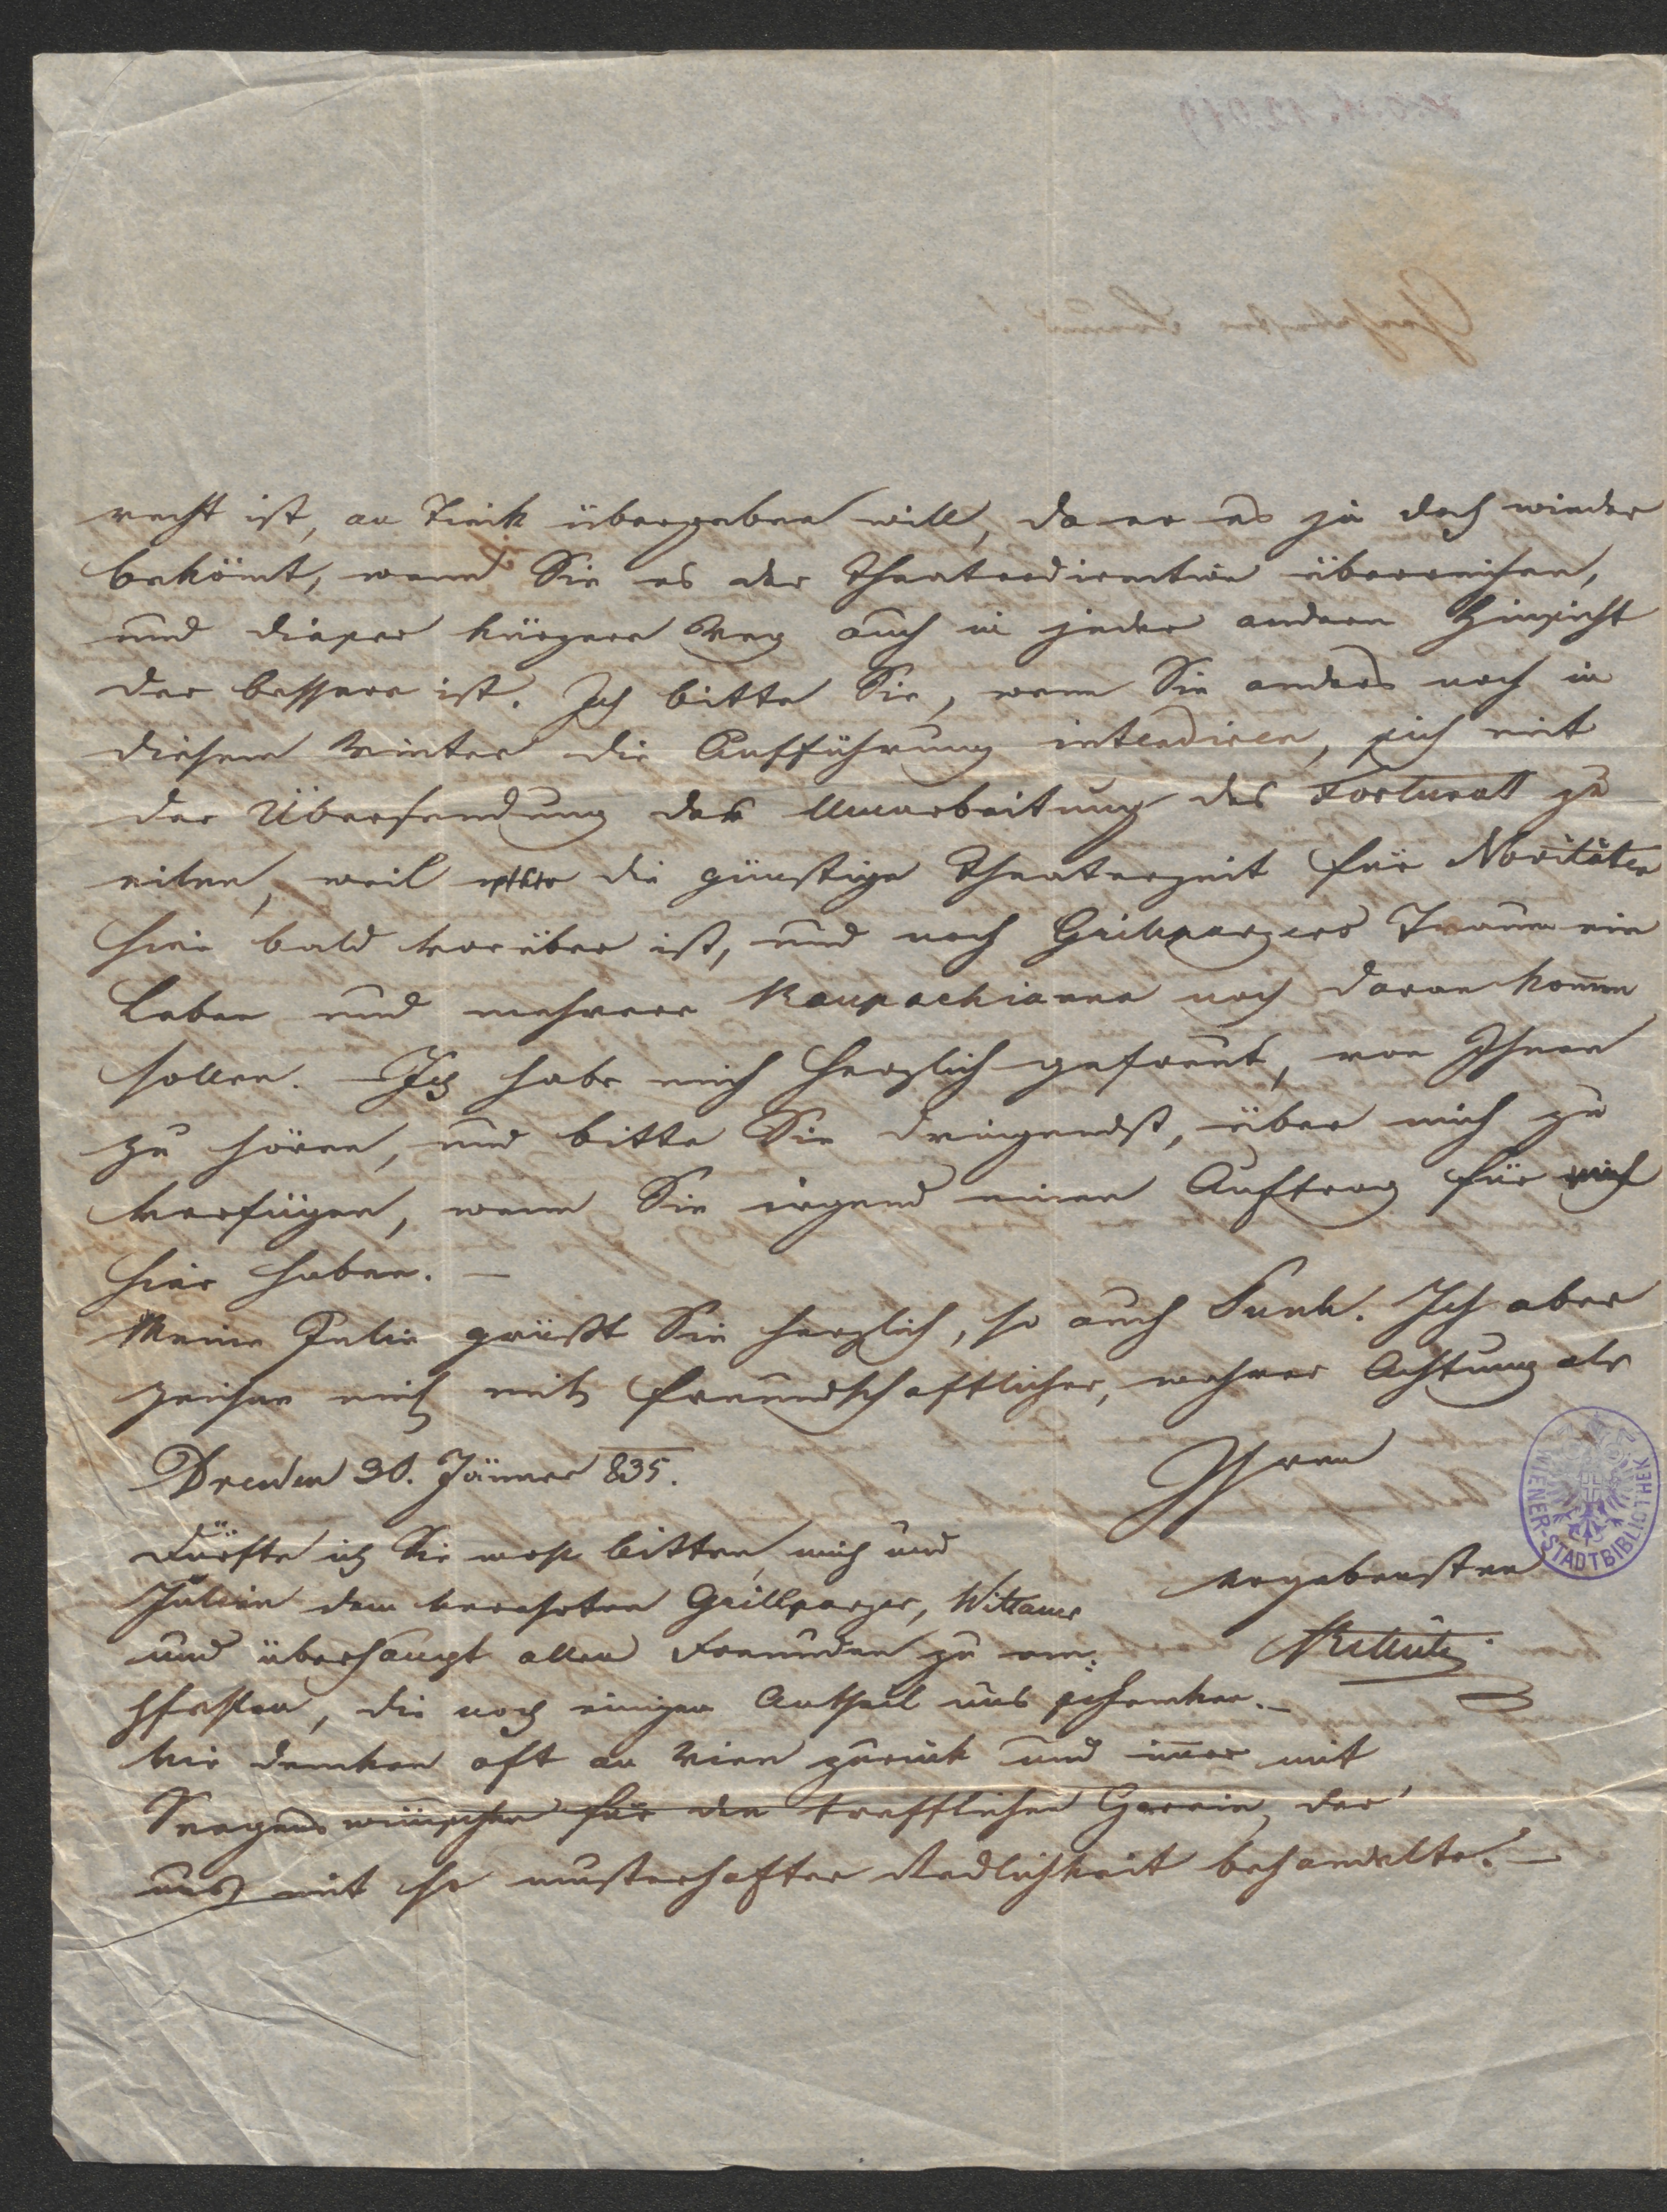 recht ist, an Tieck übergeben will, da er es ja doch wieder
bekömt, wenn Sie es der Theaterdirection überreichen,
und dieser kürzere Weg auch in jeder andern Hinsicht
der bessere ist. Ich bitte Sie, wenn Sie anders noch in
diesem Winter die Aufführung intendiren, sich mit
der Übersendung der Umarbeitung des Fortunat zu
eilen, weil die günstige Theaterzeit für Novitäten
hier bald vorüber ist, und noch Grillparzers Traum ein
Leben und mehrere Raupachiana noch daran komen
sollen. – Ich habe mich herzlich gefreut, von Ihnen
zu hören, und bitte Sie dringendst, über mich zu
verfügen, wenn Sie irgend einen Auftrag für mich
hier haben. –
Meine Julie grüßt Sie herzlich, so auch Funk. Ich aber
zeichne mich mit freundschaftlicher, wahrer Achtung als
Dresden 30. Jänner 835.
Ihren
ergebensten
Rettich
Dürfte ich Sie wohl bitten, mich und
Julien dem verehrten Grillparzer, Witthauer
und überhaupt allen Freunden zu em-
pfehlen, die noch einigen Antheil uns schenken. –
Wir denken oft an Wien zurück und imer mit
Seegenswünschen für den trefflichen Gervin, der
uns mit so musterhafter Redlichkeit behandelte. –
WIENER-STADTBIBLIOTHEK